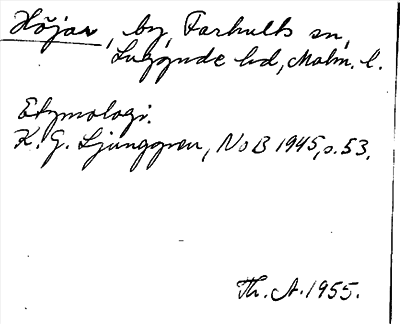 Höjar, by, Farhults sn,
Luggude hd, Malm. l.
Etymologi.
K. G. Ljunggren, NoB 1945, s. 53.
Th. A. 1955.